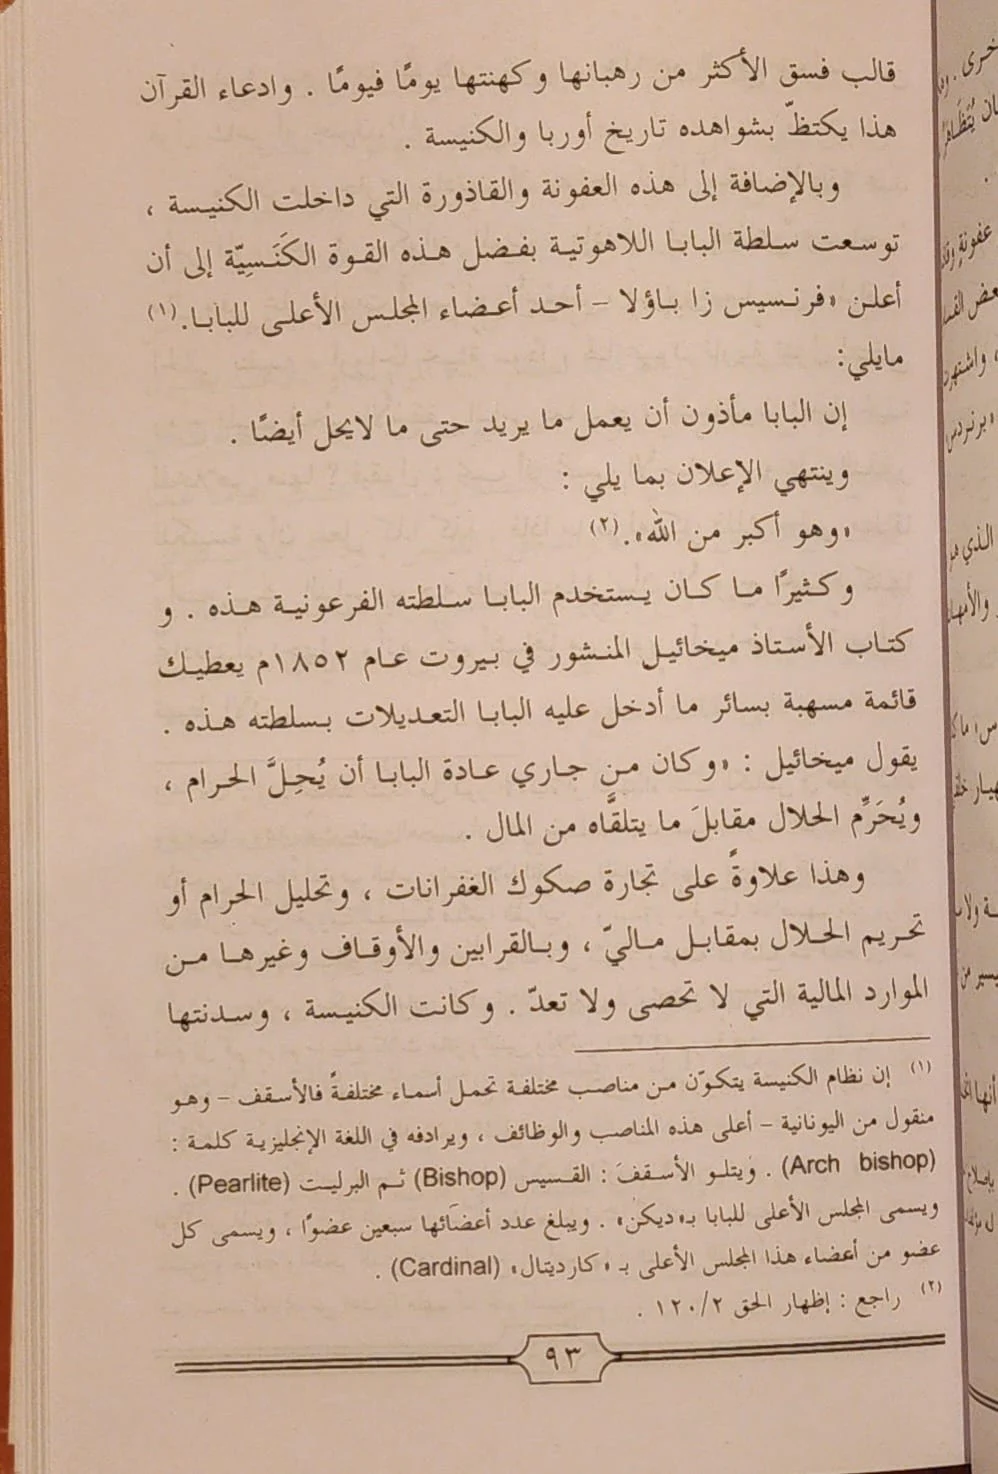 قالب فسق الأكثر من رهبانها وكهنتها يومًا فيومًا . وادعاء القرآن
هذا يكتظّ بشواهده تاريخ أوربا والكنيسة .
وبالإضافة إلى هذه العفونة والقاذورة التي داخلت الكنيسة ،
توسعت سلطة البابا اللاهوتية بفضل هذه القوة الكَنَسِيّة إلى أن
أعلن «فرنسيس زا باؤلا – أحد أعضاء المجلس الأعلى للبابا.(١)
مايلي:
إن البابا مأذون أن يعمل ما يريد حتى ما لايحل أيضًا .
وينتهي الإعلان بما يلي :
«وهو أكبر من الله».(٢)
وكثيرًا ما كان يستخدم البابا سلطته الفرعونية هذه . و
كتاب الأستاذ ميخائيل المنشور في بيروت عام ١٨٥٢م يعطيك
قائمة مسهبة بسائر ما أدخل عليه البابا التعديلات بسلطته هذه .
يقول ميخائيل : «وكان من جاري عادة البابا أن يُحِلَّ الحرام ،
ويُحَرِّم الحلال مقابلَ ما يتلقَّاه من المال .
وهذا علاوةً على تجارة صكوك الغفرانات ، وتحليل الحرام أو
تحريم الحلال بمقابل ماليّ ، وبالقرابين والأوقاف وغيرها من
الموارد المالية التي لا تحصى ولا تعدّ . وكانت الكنيسة ، وسدنتها
(١) إن نظام الكنيسة يتكوّن من مناصب مختلفة تحمل أسماء مختلفةً فالأسقف – وهو
منقول من اليونانية – أعلى هذه المناصب والوظائف ، ويرادفه في اللغة الإنجليزية كلمة :
(Arch bishop) . ويتلو الأسقفَ : القسيس (Bishop) ثم البرليت (Pearlite) .
ويسمى المجلس الأعلى للبابا بـ«ديكن» . ويبلغ عدد أعضَائها سبعين عضوًا ، ويسمى كل
عضو من أعضاء هذا المجلس الأعلى بـ «كارديتال» (Cardinal) .
(٢) راجع : إظهار الحق ١٢٠/٢ .
٩٣